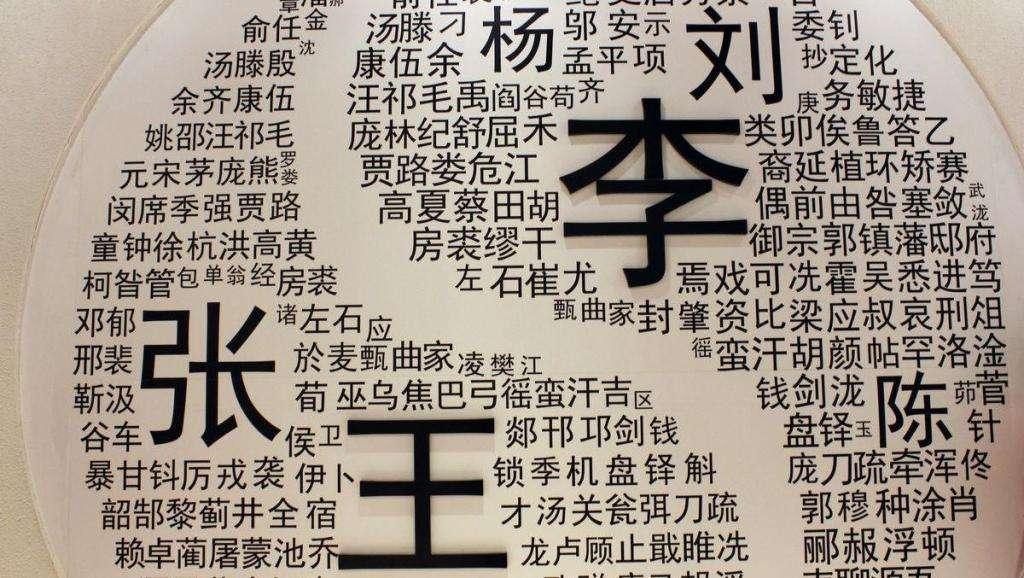 俞任金
沈
汤滕殷
余齐康伍
姚邵汪祁毛
元宋茅庞熊罗娄
闵席季强贾路
童钟徐杭洪高黄
柯昝管包单翁经房裘
邓郁
诸左石应
邢裴
靳汲
谷车
张
侯卫
暴甘钭厉戎袭伊卜
韶郜黎蓟井全宿
赖卓蔺屠蒙池乔
汤滕刁
杨
邬安示
康伍余
孟平项
汪祁毛禹阎谷苟齐
庞林纪舒屈禾
贾路娄危江
高夏蔡田胡
房裘缪干
左石崔尤
甄曲家封肇资比梁应叔哀刑俎
於麦甄曲家凌樊江
荀巫乌焦巴弓徭蛮汗吉区
王
郯邗邛剑钱
锁季机盘铎斛
才汤关瓮弭刀疏
龙卢顾止戢睢冼
刘
委钊
抄定化
庚务敏捷
李
类卯俟鲁答乙
裔延植环矫赛
偶前由昝塞敛武泷
御宗郭镇藩邸府
焉戏可冼霍吴悉进笃
徭蛮汗胡颜帖罕洛淦
钱剑泷
陈
茆菅
盘铎玉
针
庞刀疏牵浑佟
郭穆种涂肖
郦赧浮顿